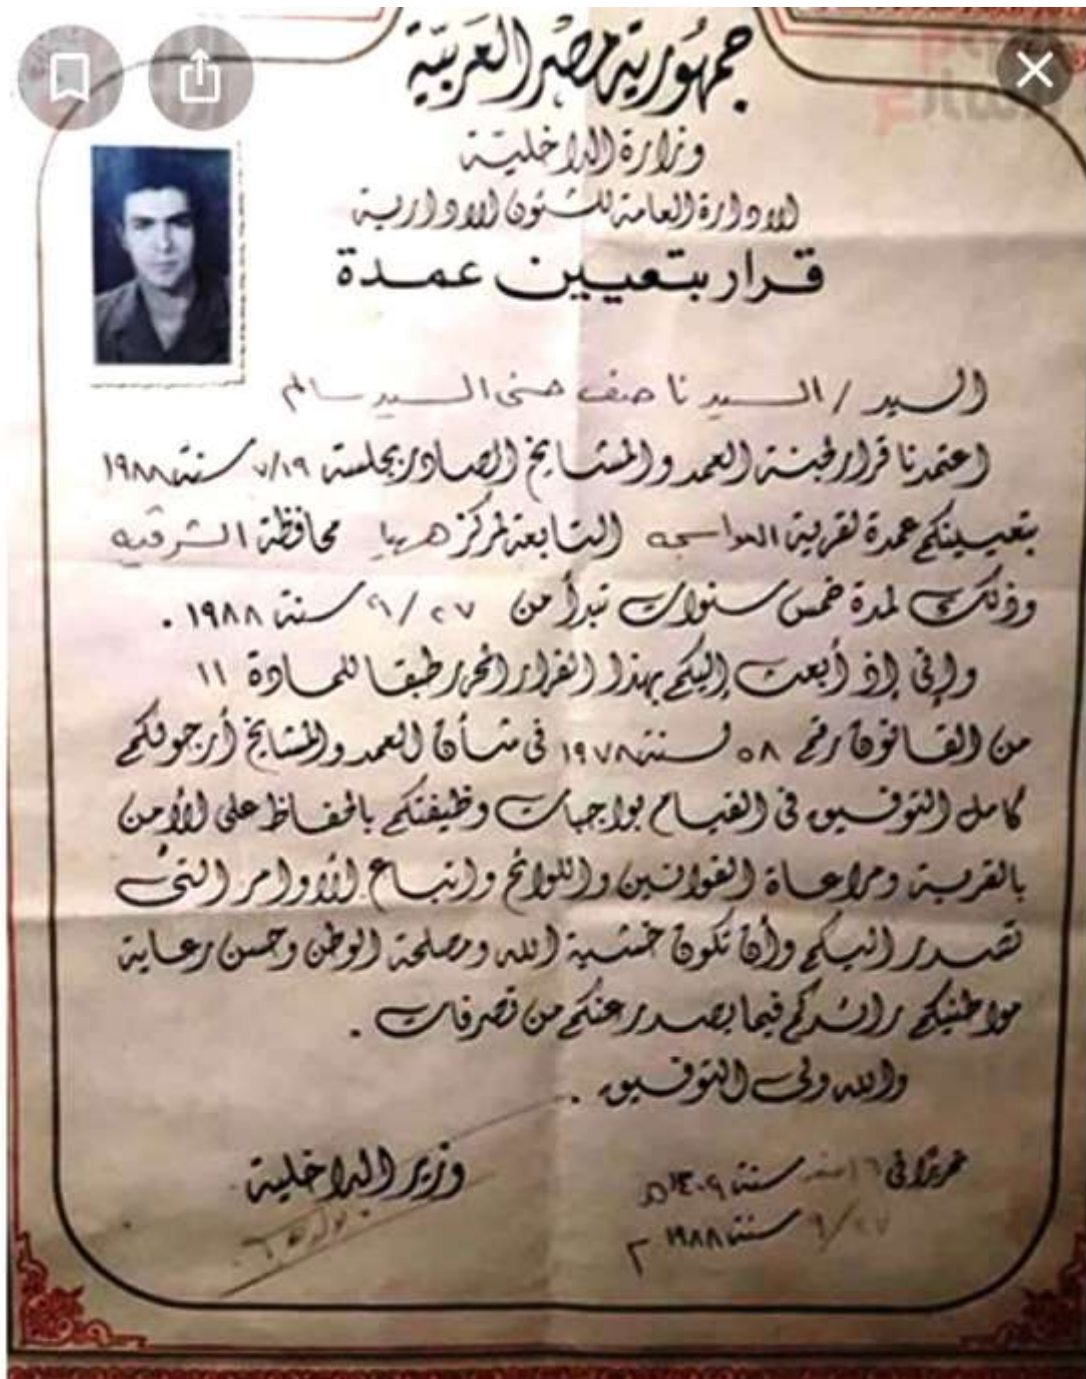 جمهورية مصر العربية
وزارة الداخلية
الادارة العامة للشئون الادارية
قرار بتعيين عمدة
السيد / السيد ناصف حنفى السيد سالم
اعتمدنا قرار لجنة العمد والمشايخ الصادر بجلسة ٧/١٩ سنة ١٩٨٨
بتعيينكم عمدة لقرية العواسجه التابعة لمركز ههيا محافظة الشرقيه
وذلك لمدة خمس سنوات تبدأ من ٩/٢٧ سنة ١٩٨٨ .
وإنى إذ أبعث إليكم بهذا القرار المحرر طبقا للمادة ١١
من القانون رقم ٥٨ لسنة ١٩٧٨ فى شأن العمد والمشايخ أرجو لكم
كامل التوفيق فى القيام بواجبات وظيفتكم بالحفاظ على الأمن
بالقرية ومراعاة القوانين واللوائح واتباع الأوامر التى
تصدر اليكم وأن تكون خشية الله ومصلحة الوطن وحسن رعاية
مواطنيكم رائدكم فيما يصدر عنكم من تصرفات .
والله ولى التوفيق .
تحريرًا فى ١٦ صفر سنة ١٤٠٩ هـ
٩/٢٧ سنة ١٩٨٨ م
وزير الداخلية